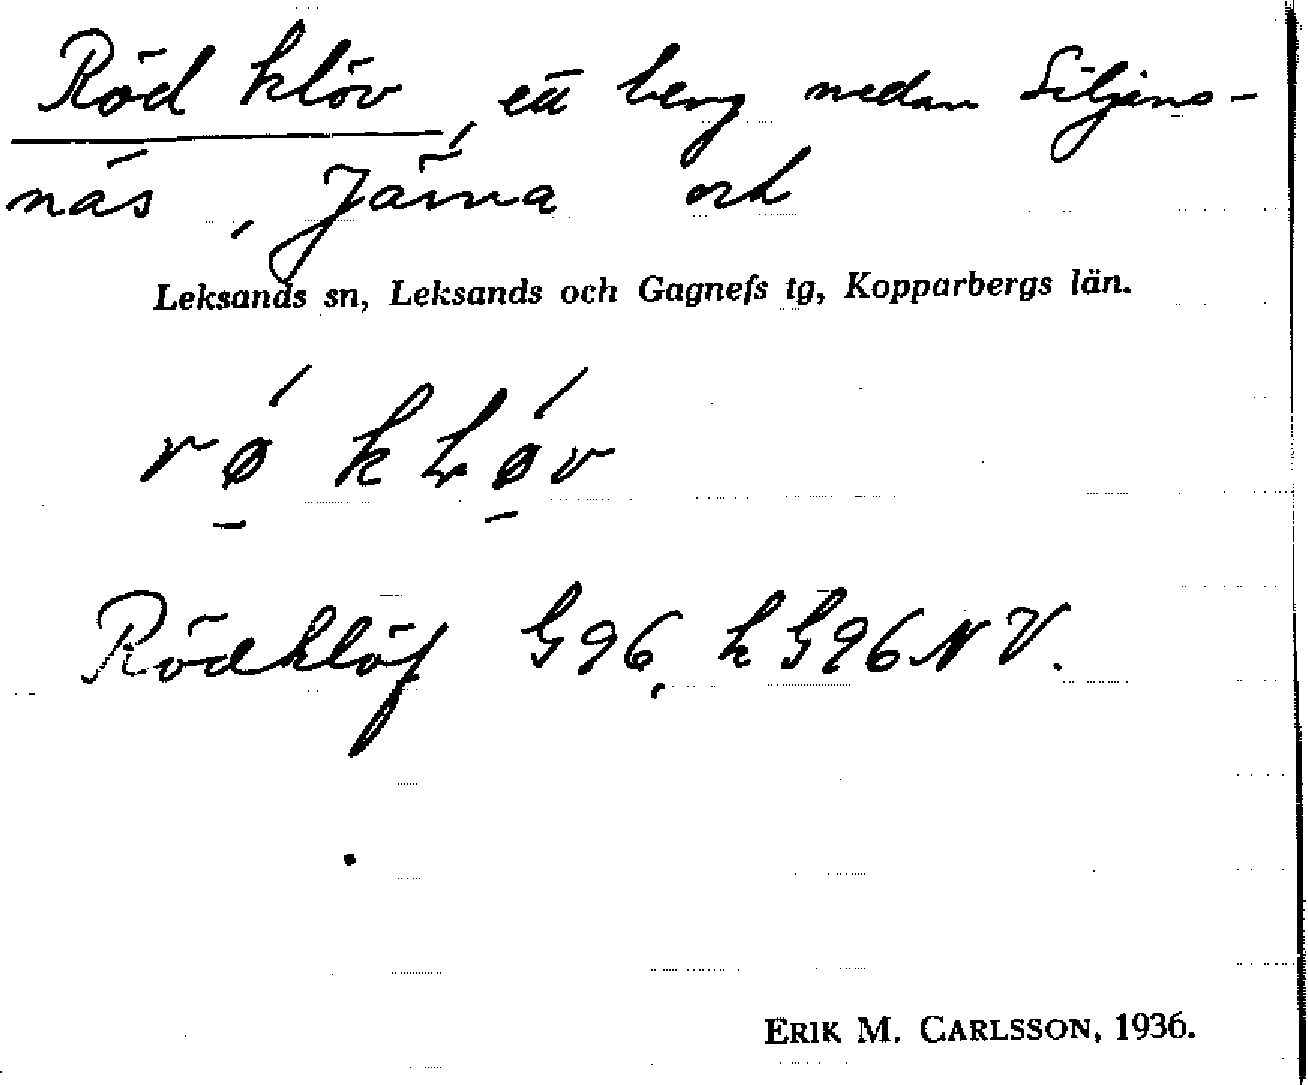 Röd klöv, ett berg nedan Siljans-
näs, Järna och
Leksands sn, Leksands och Gagnefs tg, Kopparbergs län.
rǿ̠ kLǿ̠v
Rödklöf G96, k G96NV.
ERIK M. CARLSSON, 1936.